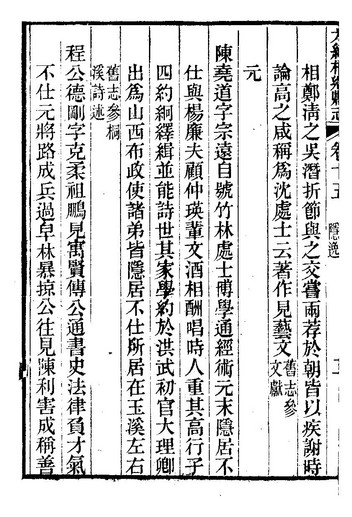 光緒桐鄉縣志 卷十五 隱逸
相鄭淸之吳潛折節與之交嘗兩荐於朝皆以疾謝時
論高之咸稱爲沈處士云著作見藝文舊志參文獻
元
陳堯道字宗遠自號竹林處士博學通經術元末隱居不
仕與楊廉夫顧仲瑛輩文酒相酬唱時人重其高行子
四約綱繹緝並能詩世其家學約於洪武初官大理卿
出爲山西布政使諸弟皆隱居不仕所居在玉溪左右
舊志參桐溪詩述
程公德剛字克柔祖鵬見寓賢傳公通書史法律負才氣
不仕元將路成兵過皁林暴掠公往見陳利害成稱善